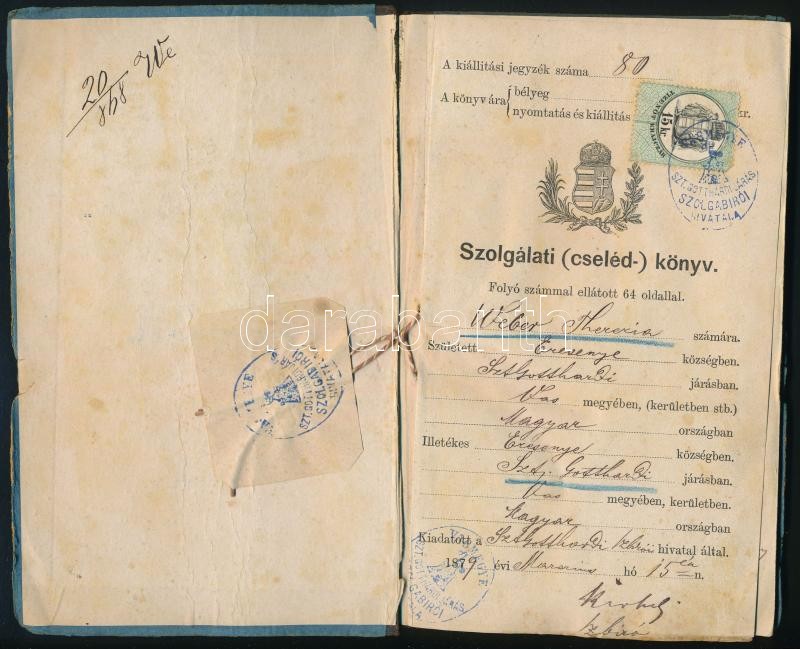 20/858 We
A kiállitási jegyzék száma 80
A könyv ára { bélyeg kr.
nyomtatás és kiállitás
15 kr
SZT. GOTTHÁRDI JÁRÁS
SZOLGABIRÓI
HIVATALA
Szolgálati (cseléd-) könyv.
Folyó számmal ellátott 64 oldallal.
Weber Therezia számára.
Született Ercsenye községben.
SztGotthardi járásban.
Vas megyében, (kerületben stb.)
Magyar országban
Illetékes Ercsenye községben.
Szt. Gotthardi járásban.
Vas megyében, kerületben.
Magyar országban
Kiadatott a SztGotthardi szbirói hivatal által.
1879 évi Marczius hó 15én.
szbiró
VASMEGYE
SZT. GOTTHÁRDI JÁRÁS
SZOLGABIRÓI
HIVATALA
darabanth